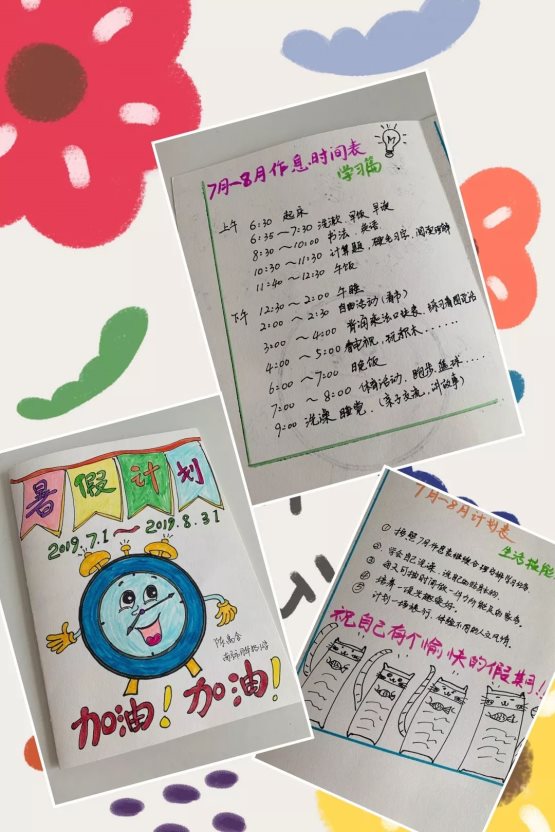 7月-8月作息时间表
学习篇
上午 6:30 起床
6:35~7:30 洗漱、早饭、早读
8:30~10:00 书法、英语
10:30~11:30 计算题、硬笔习字、阅读理解
11:40~12:30 午饭
下午 12:30~2:00 午睡
2:00~2:30 自由活动(看书)
3:00~4:00 背诵乘法口诀表、练习看图说话
4:00~5:00 看电视、玩积木......
6:00~7:00 晚饭
7:00~8:00 体育活动、跑步、篮球....
9:00 洗澡 睡觉.(亲子交流、讲故事)
暑假计划
2019.7.1~2019.8.31
加油!加油!
7月-8月计划表
生活技能
① 按照7月作息表
② 学会自己洗澡、洗自己的
③ 每天可按时清做一件力所能及的家务.
④ 培养一项兴趣爱好.
⑤ 计划一场旅行、体验不同的人文风情.
祝自己有个愉快的假期!!